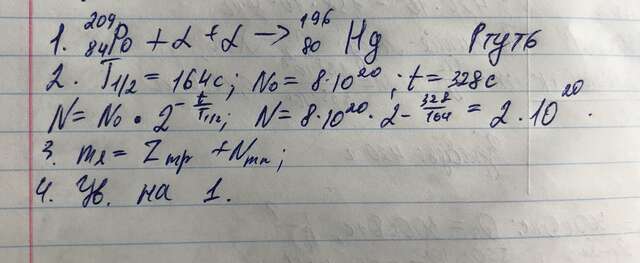 1. ²⁰⁹₈₄Po + α + α → ¹⁹⁶₈₀ Hg Ртуть
2. T₁/₂ = 164с; N₀ = 8·10²⁰; t = 328с
N = N₀ · 2^(-t/T₁/₂); N = 8·10²⁰ · 2^(-328/164) = 2·10²⁰.
3. mя = Zmp + Nmn;
4. Ув. на 1.